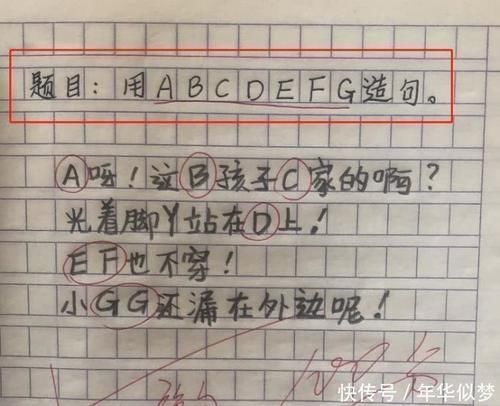 题目：用ABCDEFG造句。
A呀！这B孩子C家的啊？
光着脚丫站在D上！
EF也不穿！
小GG还漏在外边呢！
快传号／年华似梦